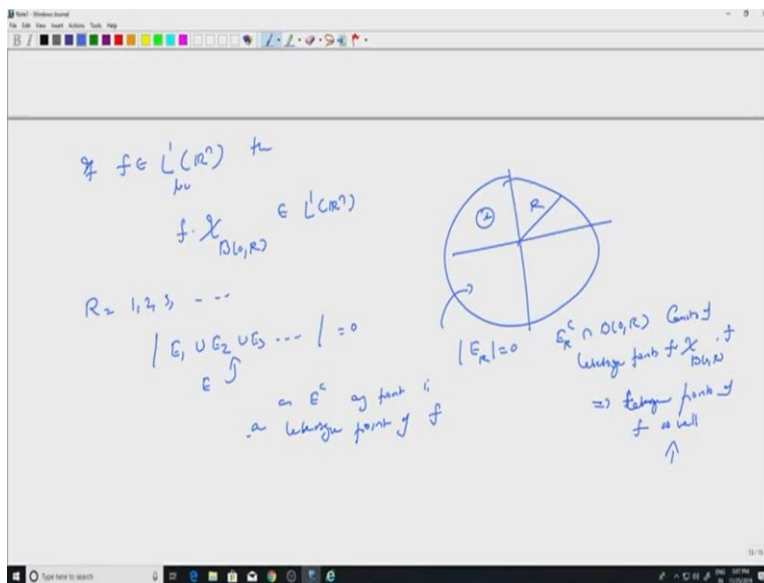 Note1 - Windows Journal
File Edit View Insert Actions Tools Help
B I
If f ∈ L¹loc(ℝⁿ) then
f·χ_B(0,R) ∈ L¹(ℝⁿ)
R
x
R = 1, 2, 3, ---
| E₁ ∪ E₂ ∪ E₃ --- | = 0
E
on E^c any point is
a Lebesgue point of f
|E_R| = 0
E_R^c ∩ B(0,R) Consists of
Lebesgue points for χ_B(0,R) · f
⇒ Lebesgue points of
f as well
13 / 13
Type here to search
ENG
3:07 PM
IN
11/25/2019